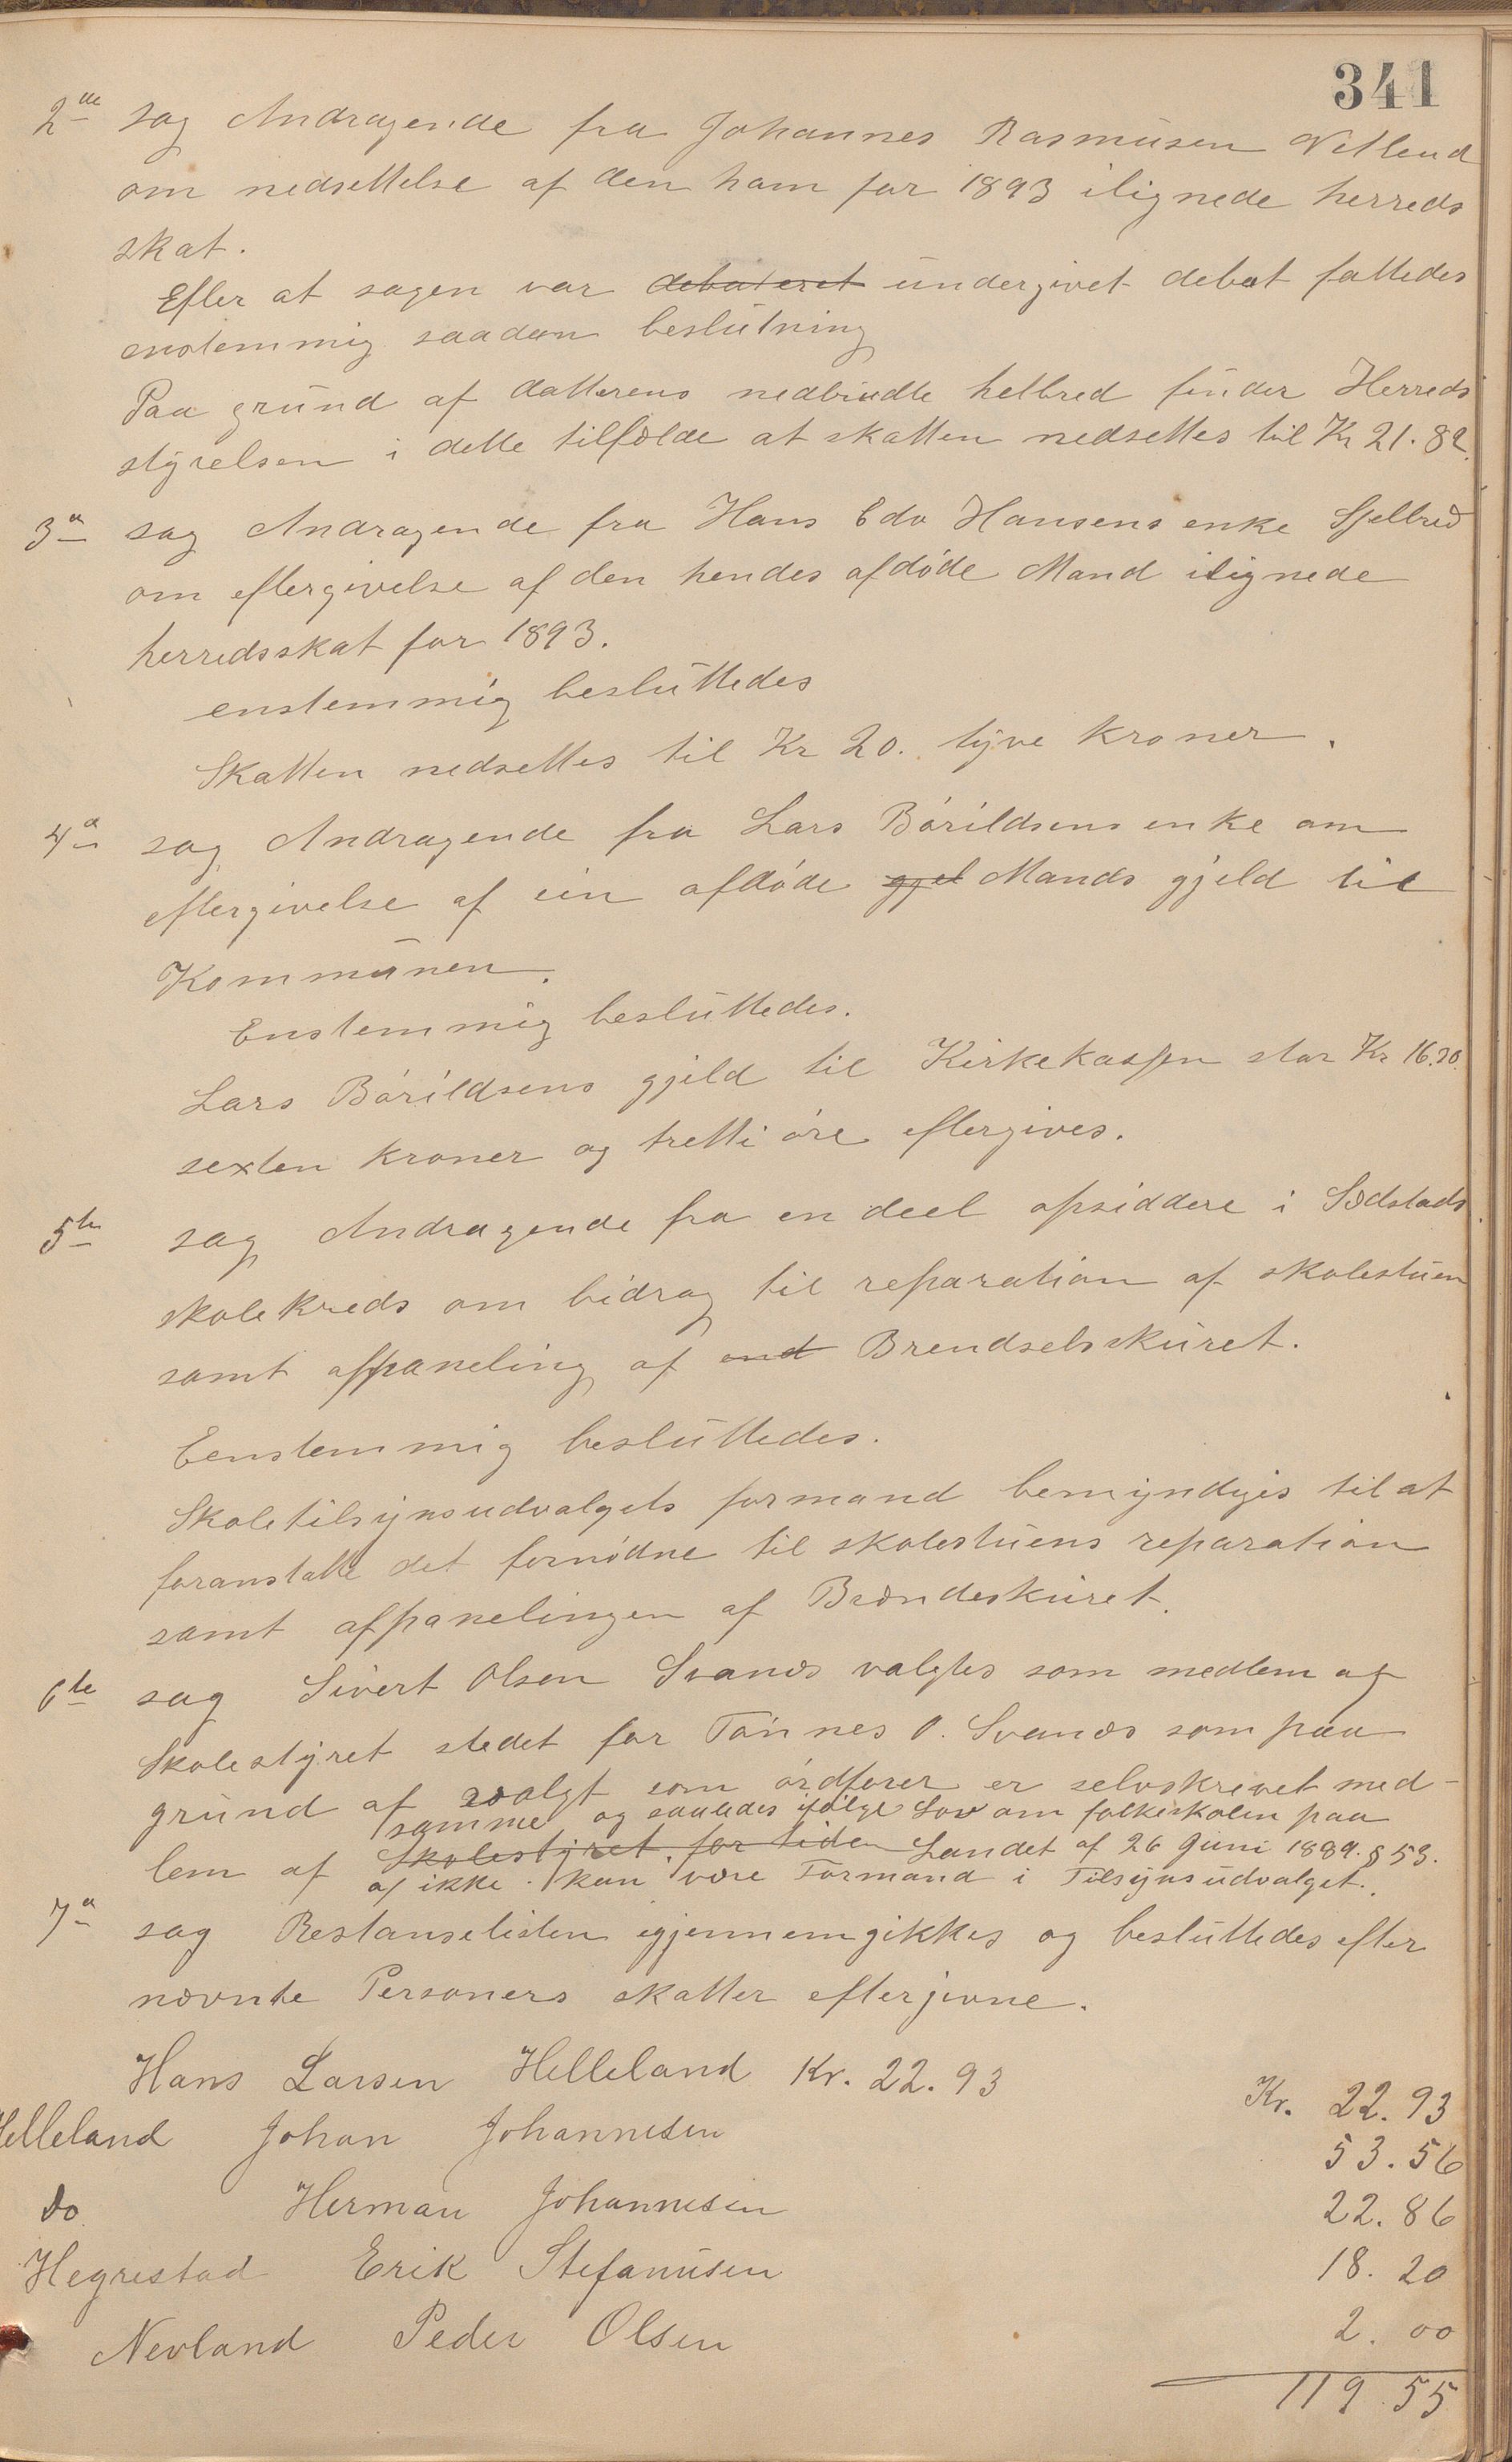 341
2den sag Andragende fra Johannes Rasmusen Netland
om nedsettelse af den ham for 1893 ilignede herreds
skat.
Efter at sagen var debateret undergivet debat fattedes
enstemmig saadan beslutning
Paa grund af datterens nedbrudte helbred finder Herreds
styrelsen i dette tilfælde at skatten nedsettes til Kr 21.82.
3die sag Andragende fra Hans Edv Hansens enke Sjelbred
om eftergivelse af den hendes afdøde Mand ilignede
herredsskat for 1893.
enstemmig besluttedes
Skatten nedsettes til Kr 20. tyve kroner.
4de sag Andragende fra Lars Bårildsens enke om
eftergivelse af sin afdøde gjel Mands gjeld til
Kommunen.
Enstemmig besluttedes.
Lars Bårildsens gjeld til Kirkekassen stor Kr 16.30.
sexten kroner og tretti øre eftergives.
5te sag Andragende fra en deel opsiddere i Sædstads
skolekreds om bidrag til reparation af skolestuen
samt afpaneling af end Brendselsskuret.
Eenstemmig besluttedes.
Skoletilsynsudvalgets formand bemyndiges til at
foranstalte det fornødne til skolestuens reparation
samt afpanelingen af Brændeskuret.
6te sag Sivert Olsen Svanæs valgtes som medlem af
Skolestyret stedet for Tønnes O. Svanæs som paa
grund af valgt som ordfører er selvskrevet med-
samme og saaledes ifølge Lov om folkeskolen paa
lem af Skolestyret, for tiden Landet af 26 Juni 1889. § 53.
af ikke kan være Formand i Tilsynsudvalget.
7de sag Restanselisten igjennemgikkes og besluttedes efter
nævnte Personers skatter eftergivne.
Hans Larsen Helleland Kr. 22.93 Kr. 22.93
Helleland Johan Johannesen 53.56
Do Herman Johannesen 22.86
Hegrestad Erik Stefanusen 18.20
Nevland Peder Olsen 2.00
119.55